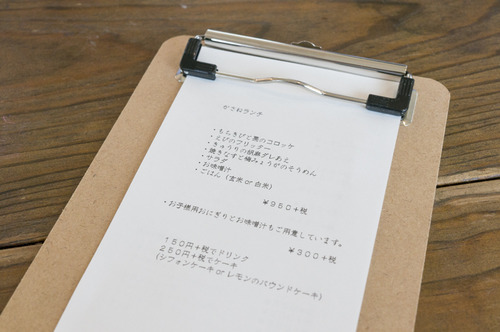 かさねランチ
・もちきびと栗のコロッケ
・とびのフリッター
・きゅうりの胡麻ダレあえ
・焼きなすと梅みょうがのそうめん
・サラダ
・お味噌汁
・ごはん (玄米 or 白米)
¥950+税
・お子様用おにぎりとお味噌汁もご用意しています。
¥300+税
150円+税でドリンク
250円+税でケーキ
(シフォンケーキ or レモンのパウンドケーキ)